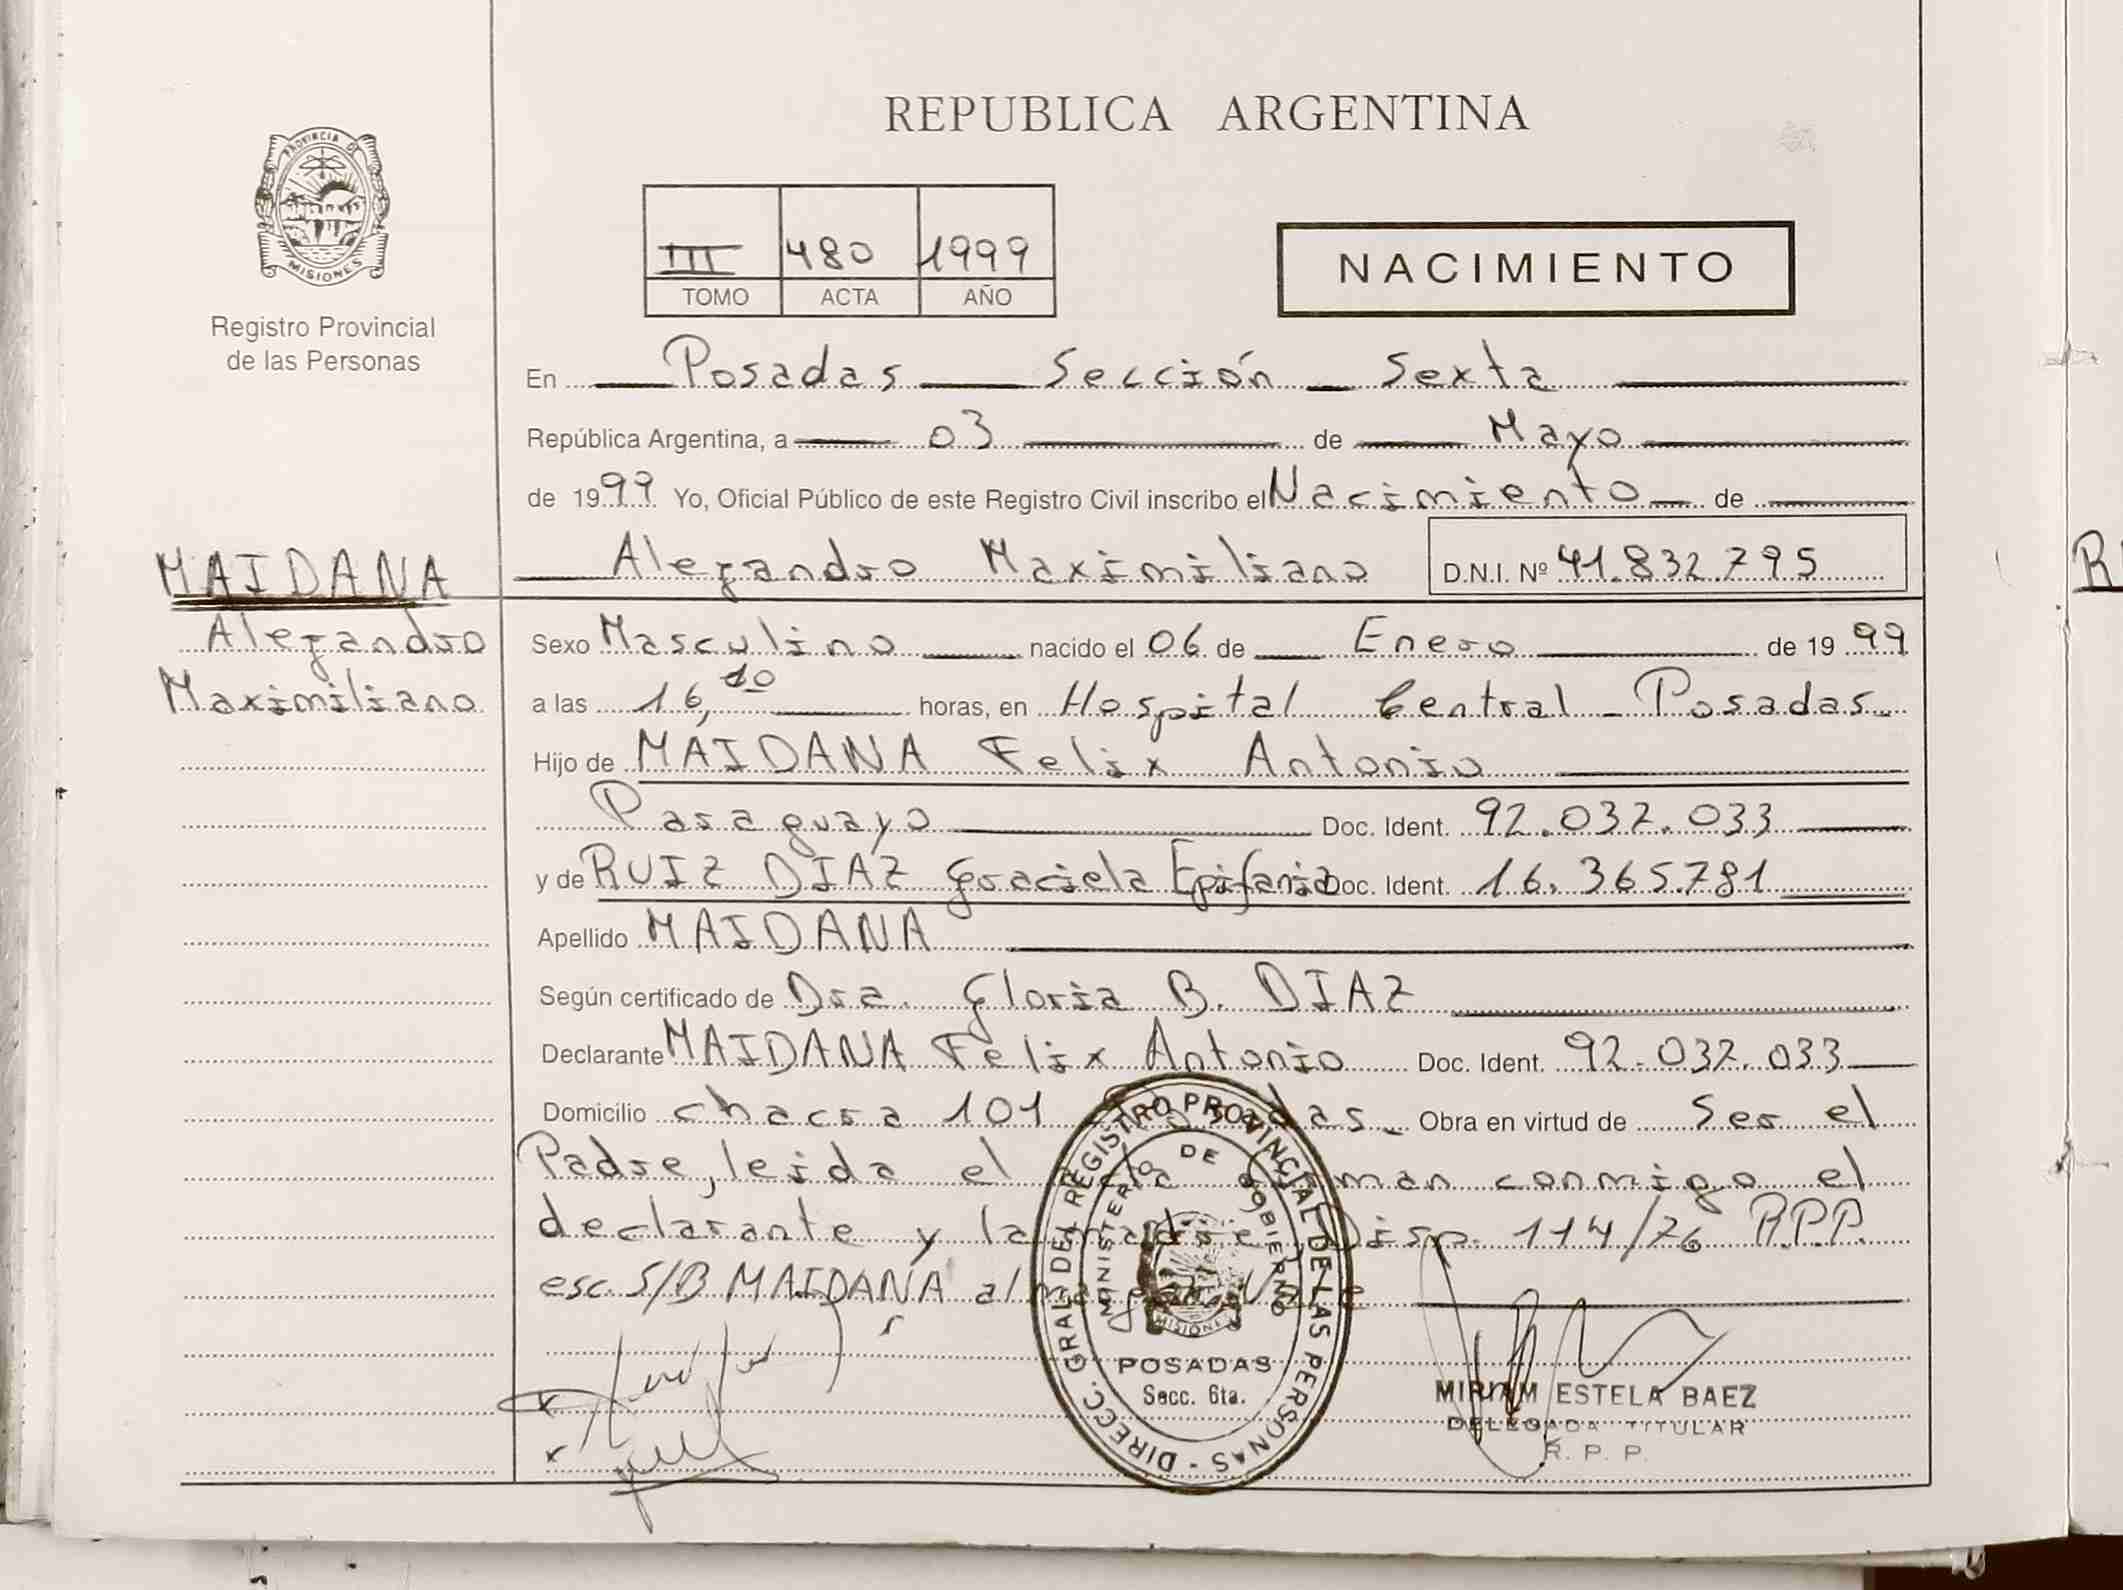 REPUBLICA ARGENTINA
PROVINCIA DE
MISIONES
Registro Provincial
de las Personas
III 480 1999
TOMO ACTA AÑO
NACIMIENTO
En Posadas Sección Sexta
República Argentina, a 03 de Mayo
de 1999 Yo, Oficial Público de este Registro Civil inscribo el Nacimiento de
MAIDANA
Alejandro Maximiliano D.N.I. Nº 41.832.795
Alejandro
Maximiliano
Sexo Masculino nacido el 06 de Enero de 1999
a las 16, horas, en Hospital Central - Posadas
Hijo de MAIDANA Felix Antonio
Paraguayo Doc. Ident. 92.037.033
y de RUIZ DIAZ Graciela Epifania Doc. Ident. 16.365.781
Apellido MAIDANA
Según certificado de Dra. Gloria B. DIAZ
Declarante MAIDANA Felix Antonio Doc. Ident. 92.037.033
Domicilio chacra 101 Posadas. Obra en virtud de Ser el
Padre, leida el acta firman conmigo el
declarante y la madre. Disp. 114/76 R.P.P.
esc. S/B MAIDANA al margen Vale
DIRECC. GRAL. DEL REGISTRO PROVINCIAL DE LAS PERSONAS -
MINISTERIO DE GOBIERNO
MISIONES
POSADAS
Secc. 6ta.
MIRIAM ESTELA BAEZ
DELEGADA TITULAR
R. P. P.